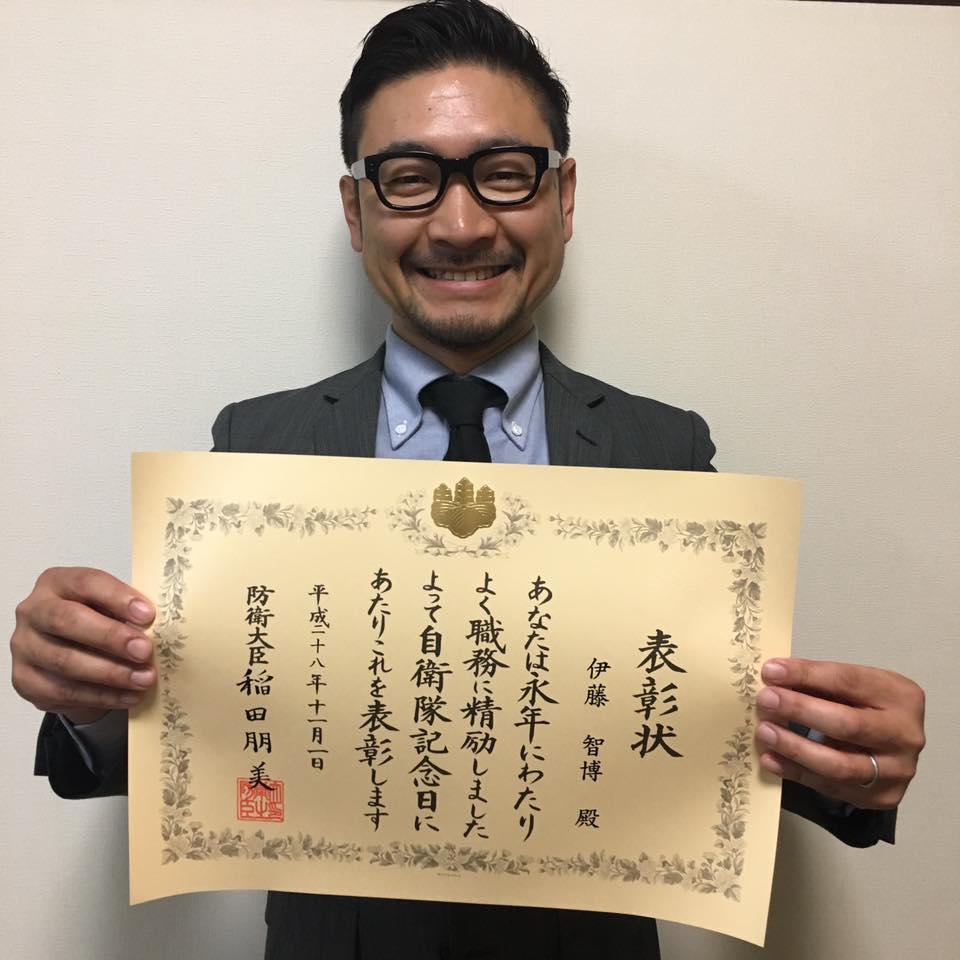 表彰状
伊藤 智博 殿
あなたは永年にわたり
よく職務に精励しました
よって自衛隊記念日に
あたりこれを表彰します
平成二十八年十一月一日
防衛大臣 稲田朋美